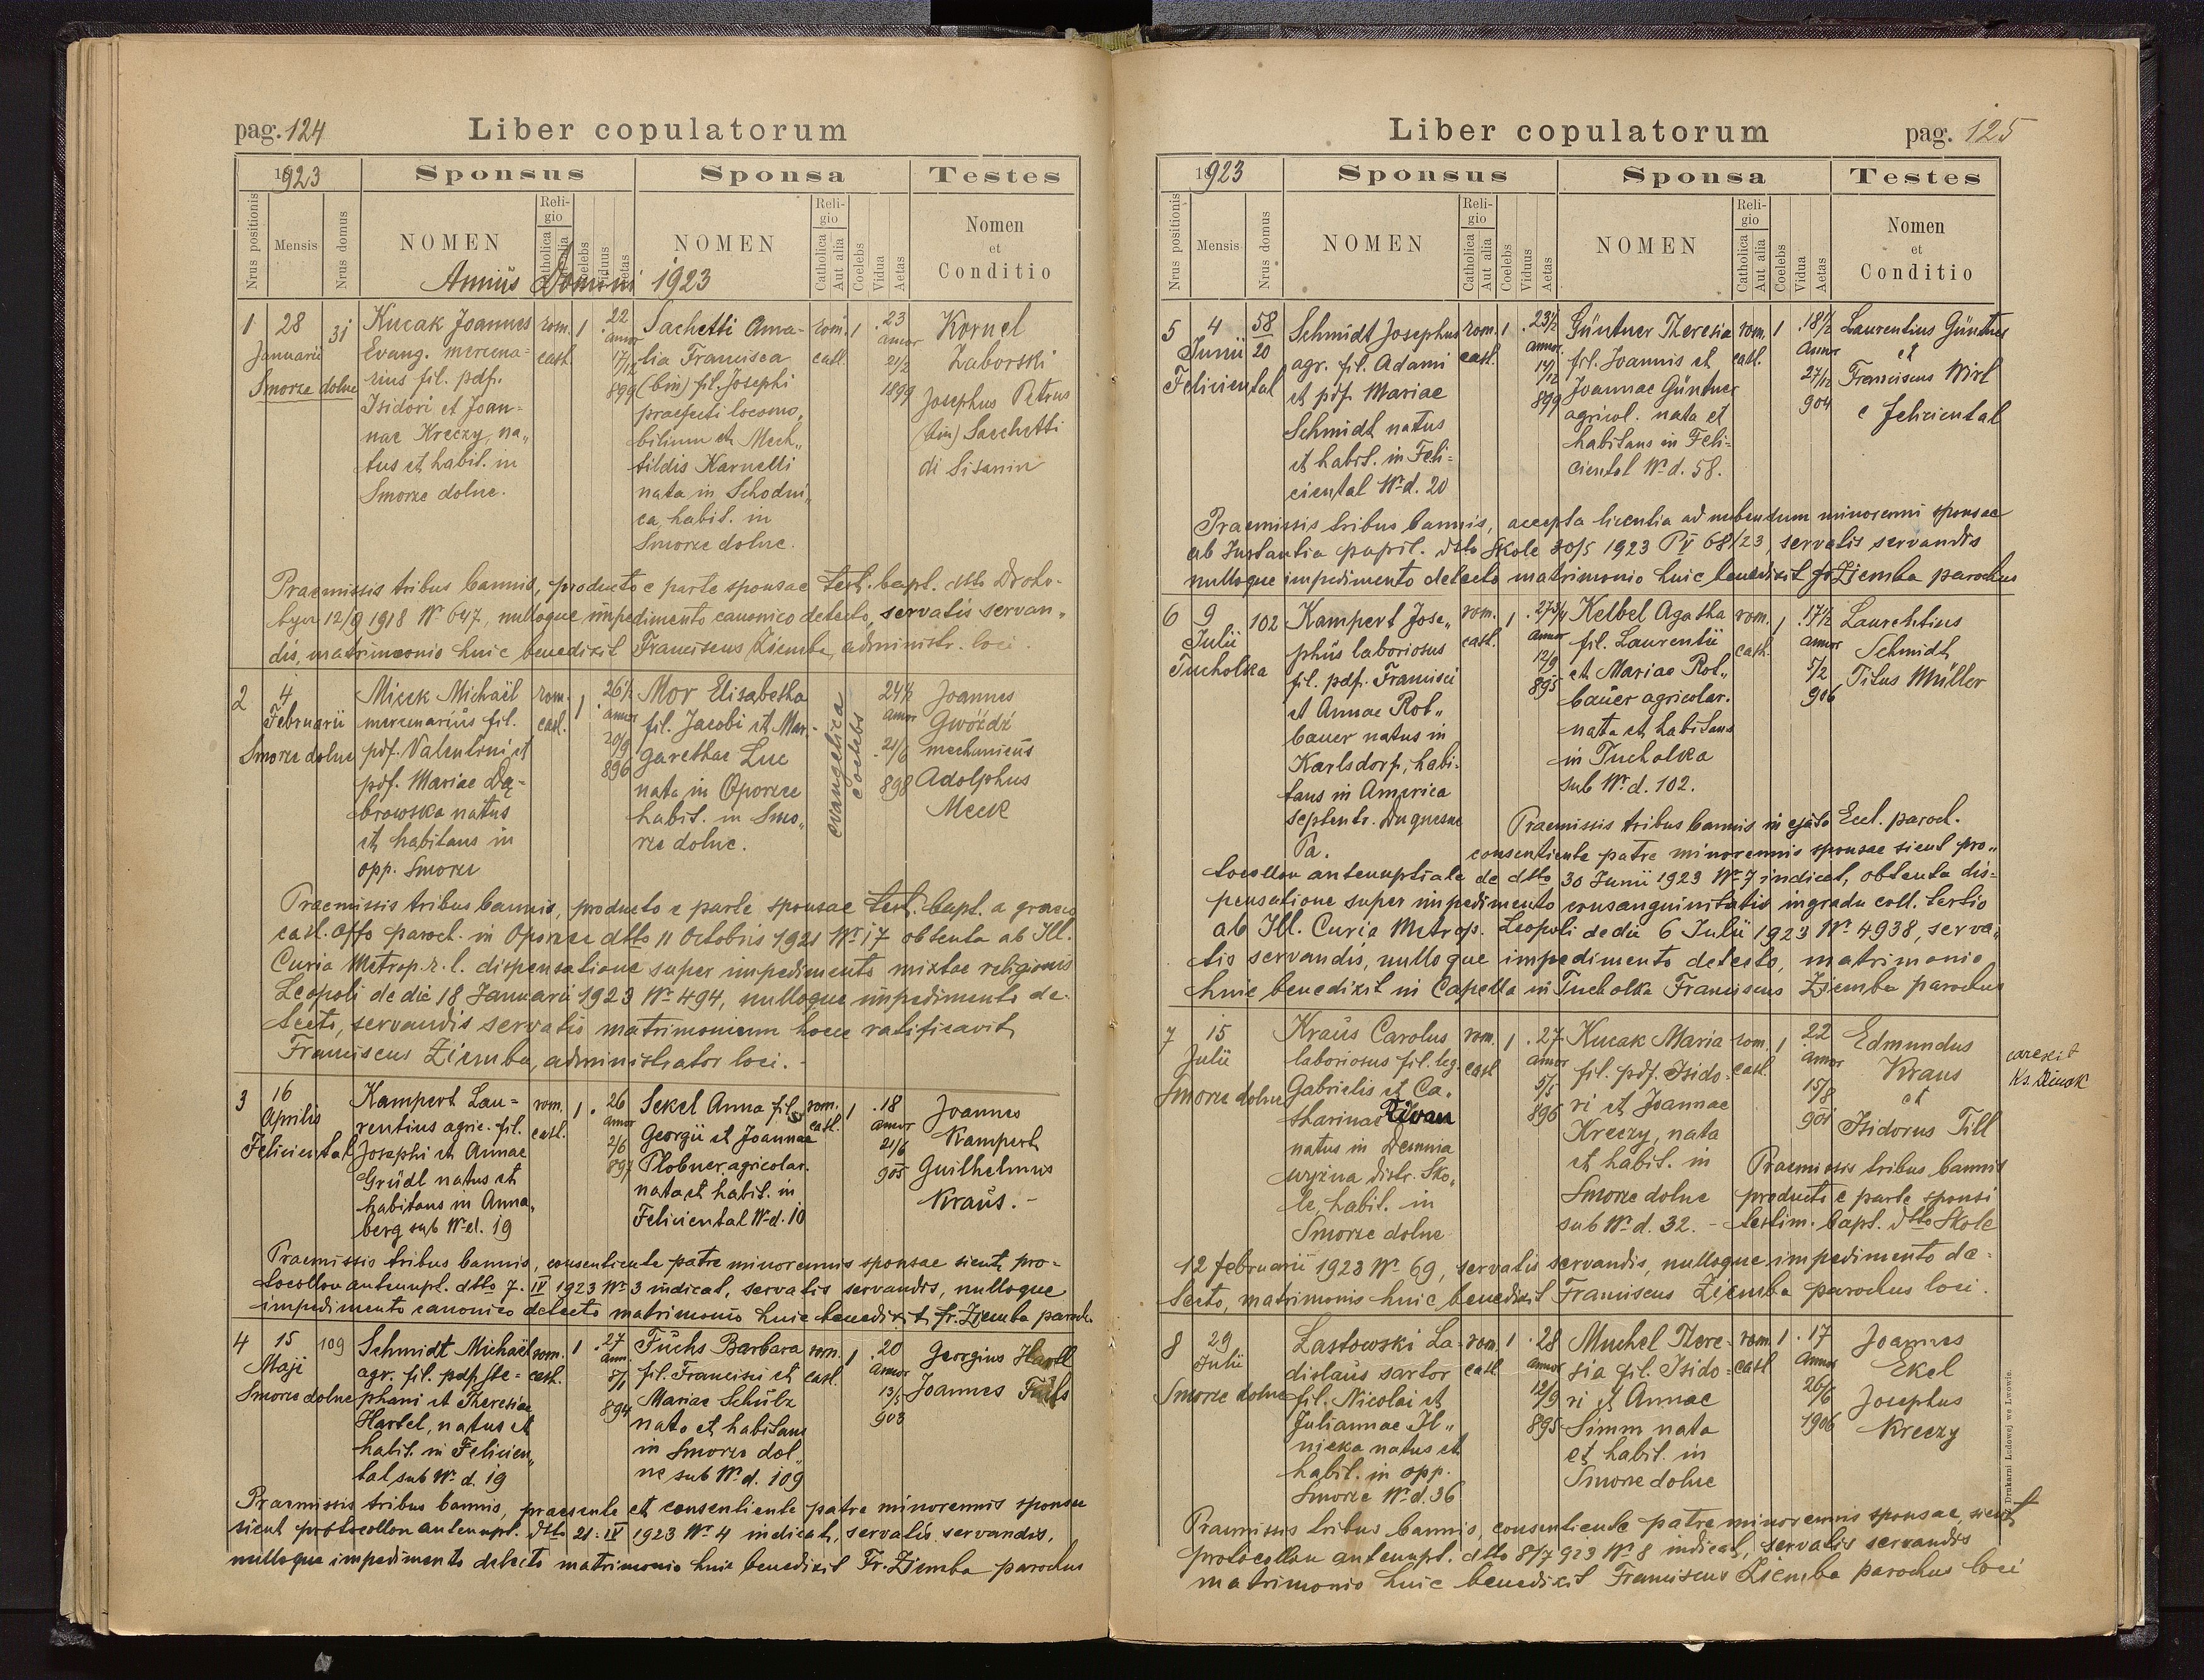 pag. 124
Liber copulatorum
1923
Sponsus
Sponsa
Testes
Nrus positionis
Mensis
Nrus domus
NOMEN
Religio
Catholica
Aut alia
Coelebs
Viduus
Aetas
NOMEN
Religio
Catholica
Aut alia
Coelebs
Vidua
Aetas
Nomen
et
Conditio
Annus Domini 1923
1
28
Januarii
Smorze dolne
31
Kucak Joannes
Evang. mercena=
rius fil. pdf.
Isidori et Joan=
nae Kreczy, na„
tus et habit. in
Smorze dolne.
rom.
cath.
1
22
annor
17/12
899
Sachetti Ama-
lia Francisca
(bin) fil. Josephi
praefecti locomo,
bilium et Mech„
tildis Karnelli
nata in Schodni„
ca, habit. in
Smorze dolne.
rom.
cath.
1
23
annor
21/2
1899
Kornel
Zaborski
Josephus Petrus
(bin) Sacchetti
di Sisanin
Praemissis tribus bannis, producto e parte sponsae test. bapt. dtto Droho-
bycz 12/9 1918 № 647, nulloque impedimento canonico detecto, servatis servan„
dis, matrimonio huic benedixit Franciscus Ziemba, administr. loci.
2
4
Februarii
Smorze dolne
Micek Michaël
mercenarius fil.
pdf. Valentini et
pdf. Mariae Dą-
browska natus
et habitans in
opp. Smorze
rom.
cath.
1
26½
annor
20/9
896
Mor Elisabetha
fil. Jacobi et Mar-
garethae Luc
nata in Oporzec
habit. in Smo„
rze dolne.
evangelica
coelebs
24½
annor
21/6
898
Joannes
Gwóźdź
mechanicus
Adolphus
Meck
Praemissis tribus bannis, producto e parte sponsae test. bapt. a graeco
cath. offo paroch. in Oporzec dtto 11 Octobris 1921 № 17 obtenta ab Ill.
Curia Metrop. r. l. dispensatione super impedimento mixtae religionis
Leopoli de die 18 Januarii 1923 № 494, nulloque impedimento de-
tecto, servandis servatis matrimonium hocce ratificavit
Franciscus Ziemba, administrator loci. -
3
16
Aprilis
Feliciental
Kampert Lau=
rentius agric. fil.
Josephi et Annae
Gründl natus et
habitans in Anna„
berg sub № d. 19
rom.
cath.
1
26
annor
2/6
897
Sekel Anna fil.
Georgii et Joannae
Plobner, agricolar.
nata et habit. in
Feliciental № d. 10
rom.
cath.
1
18
annor
21/6
905
Joannes
Kampert
Guilhelmus
Kraus. -
Praemissis tribus bannis, consentiente patre minorennis sponsae sicut pro=
tocollon antenupt. dtto 7. IV 1923 № 3 indicat, servatis servandis, nulloque
impedimento canonico detecto matrimonio huic benedixit Fr. Ziemba paroch.
4
15
Maji
Smorze dolne
109
Schmidt Michaël
agr. fil. pdf. Ste=
phani et Theresiae
Hartel, natus et
habit. in Felicien„
tal sub № d. 19
rom.
cath.
1
27
ann.
8/1
894
Fuchs Barbara
fil. Francisci et
Mariae Schülz
nata et habitans
in Smorze dol„
ne sub № d. 109
rom.
cath.
1
20
annor
13/5
903
Georgius Hartl
Joannes Fuchs
Praemissis tribus bannis, praesente et consentiente patre minorennis sponsae
sicut protocollon antenupt. dtto 21. IV 1923 № 4 indicat, servatis servandis,
nulloque impedimento detecto matrimonio huic benedixit Fr. Ziemba parochus
Liber copulatorum
pag. 125
1923
Sponsus
Sponsa
Testes
Nrus positionis
Mensis
Nrus domus
NOMEN
Religio
Catholica
Aut alia
Coelebs
Viduus
Aetas
NOMEN
Religio
Catholica
Aut alia
Coelebs
Vidua
Aetas
Nomen
et
Conditio
5
4
Junii
Feliciental
58
20
Schmidt Josephus
agr. fil. Adami
et pdf. Mariae
Schmidt natus
et habit. in Feli=
ciental № d. 20
rom.
cath.
1
23½
annor.
17/12
899
Güntner Theresia
fil. Joannis et
Joannae Güntner
agricol. nata et
habitans in Feli=
ciental № d. 58.
rom.
cath.
1
18½
annor
27/12
904
Laurentius Güntner
et
Franciscus Wirl
e Feliciental
Praemissis tribus bannis, accepta licentia ad nubendum minorenni sponsae
ab Instantia pupil. dtto Skole 30/5 1923 P V 68/23, servatis servandis
nulloque impedimento detecto matrimonio huic benedixit Fr Ziemba parochus
6
9
Julii
Tucholka
102
Kampert Jose„
phus laboriosus
fil. pdf. Francisci
et Annae Rot„
bauer natus in
Karlsdorf, habi-
tans in America
septentr. Duquesne
Pa.
rom.
cath.
1
27¾
annor
12/9
895
Kelbel Agatha
fil. Laurentii
et Mariae Rot„
bauer agricolar.
nata et habitans
in Tucholka
sub № d. 102.
rom.
cath.
1
17½
annor
5/2
906
Laurentius
Schmidt
Titus Müller
Praemissis tribus bannis in Eccl. paroch.
consentiente patre minorennis sponsae sicut pro„
tocollon antenuptiale de dtto 30 Junii 1923 № 7 indicat, obtenta dis=
pensatione super impedimento consanguinitatis in gradu coll. tertio
ab Ill. Curia Metrop. Leopoli de die 6 Julii 1923 № 4938, serva„
tis servandis, nulloque impedimento detecto, matrimonio
huic benedixit in Capella in Tucholka Franciscus Ziemba parochus
7
15
Julii
Smorze dolne
Kraus Carolus
laboriosus fil. leg.
Gabrielis et Ca-
tharinae
natus in Demnia
wyżna distr. Sko„
le, habit. in
Smorze dolne
rom.
cath
1
27
annor
5/5
896
Kucak Maria
fil. pdf. Isido-
ri et Joannae
Kreczy, nata
et habit. in
Smorze dolne
sub № d. 32. -
rom.
cath.
1
22
annor
15/8
901
Edmundus
Kraus
et
Isidorus Till
Ks.
Praemissis tribus bannis
producto e parte sponsi
testim. bapt. dtto Skole
12 februarii 1923 № 69, servatis servandis, nulloque impedimento de=
tecto, matrimonio huic benedixit Franciscus Ziemba parochus loci.
8
29
Julii
Smorze dolne
Lastowski La-
dislaus sartor
fil. Nicolai et
Juliannae Il„
nicka natus et
habit. in opp.
Smorze № d. 36
rom.
cath
1
28
annor
12/9
895
Muchel There-
sia fil. Isido-
ri et Annae
Simm nata
et habit. in
Smorze dolne
rom.
cath
1
17
annor
26/6
1906
Joannes
Ekel
Josephus
Kreczy
Praemissis tribus bannis, consentiente patre minorennis sponsae, sicut
protocollon antenupt. dtto 8/7 923 № 8 indicat, servatis servandis
matrimonio huic benedixit Franciscus Ziemba parochus loci
Z Drukarni Ludowej we Lwowie.